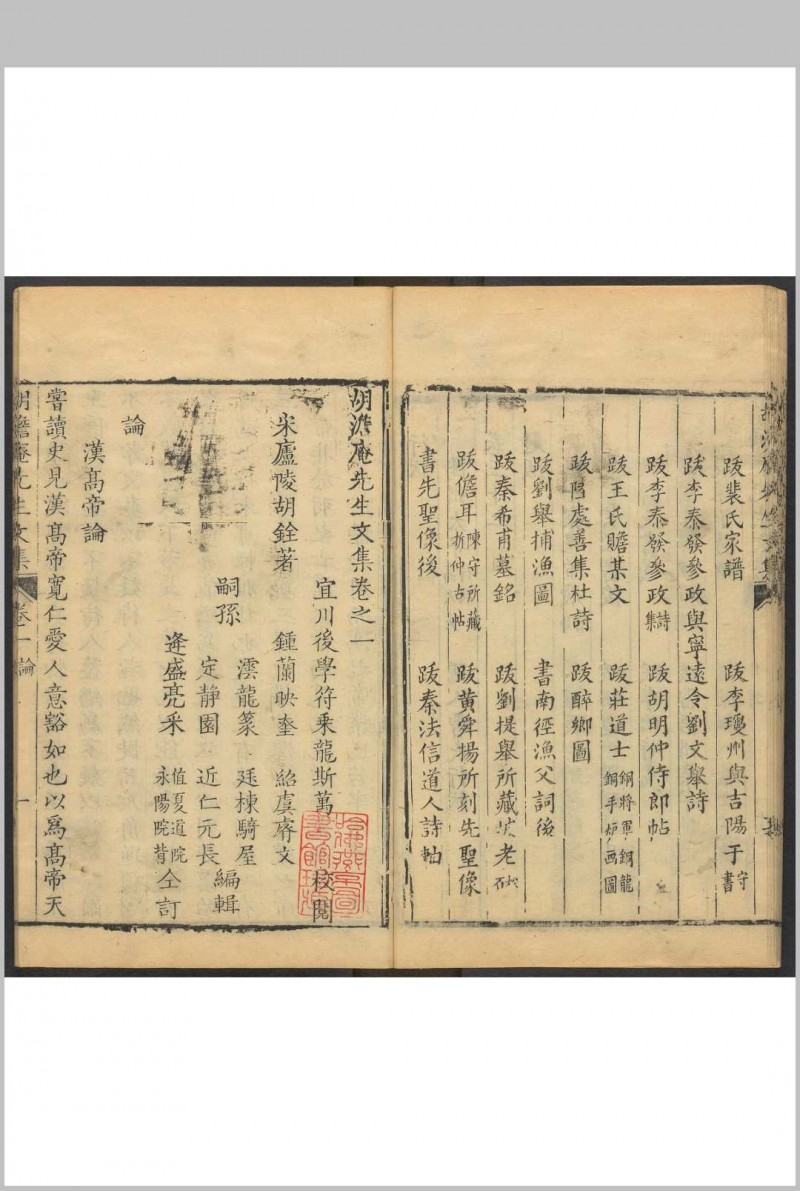 跋裴氏家譜　跋李瓊州與吉陽于守書
跋李泰發參政與寧遠令劉文舉詩
跋李泰發參政詩集　跋胡明仲侍郎帖
跋王氏贍某文　跋莊道士銅將軍銅龍銅手爐画圖
跋陷處善集杜詩　跋醉鄉圖
跋劉舉捕漁圖　書南徑漁父詞後
跋秦希甫墓銘　跋劉提舉所藏老
跋儋耳陳守所藏折仲古帖　跋黄舜揚所刻先聖像
書先聖像後　跋秦法信道人詩軸
胡澹庵先生文集卷之一
宜川後學符乘龍斯萬校閲
宋廬陵胡銓著　鍾蘭映奎　紹虞賡文
澐龍篆　廷棟騎屋
嗣孫　定静園　近仁元長　編輯
逄盛亮采　值夏道院永陽院背仝訂
論
漢髙帝論
嘗讀史見漢髙帝寛仁愛人意豁如也以爲髙帝天
胡澹庵先生文集　卷一　論　一